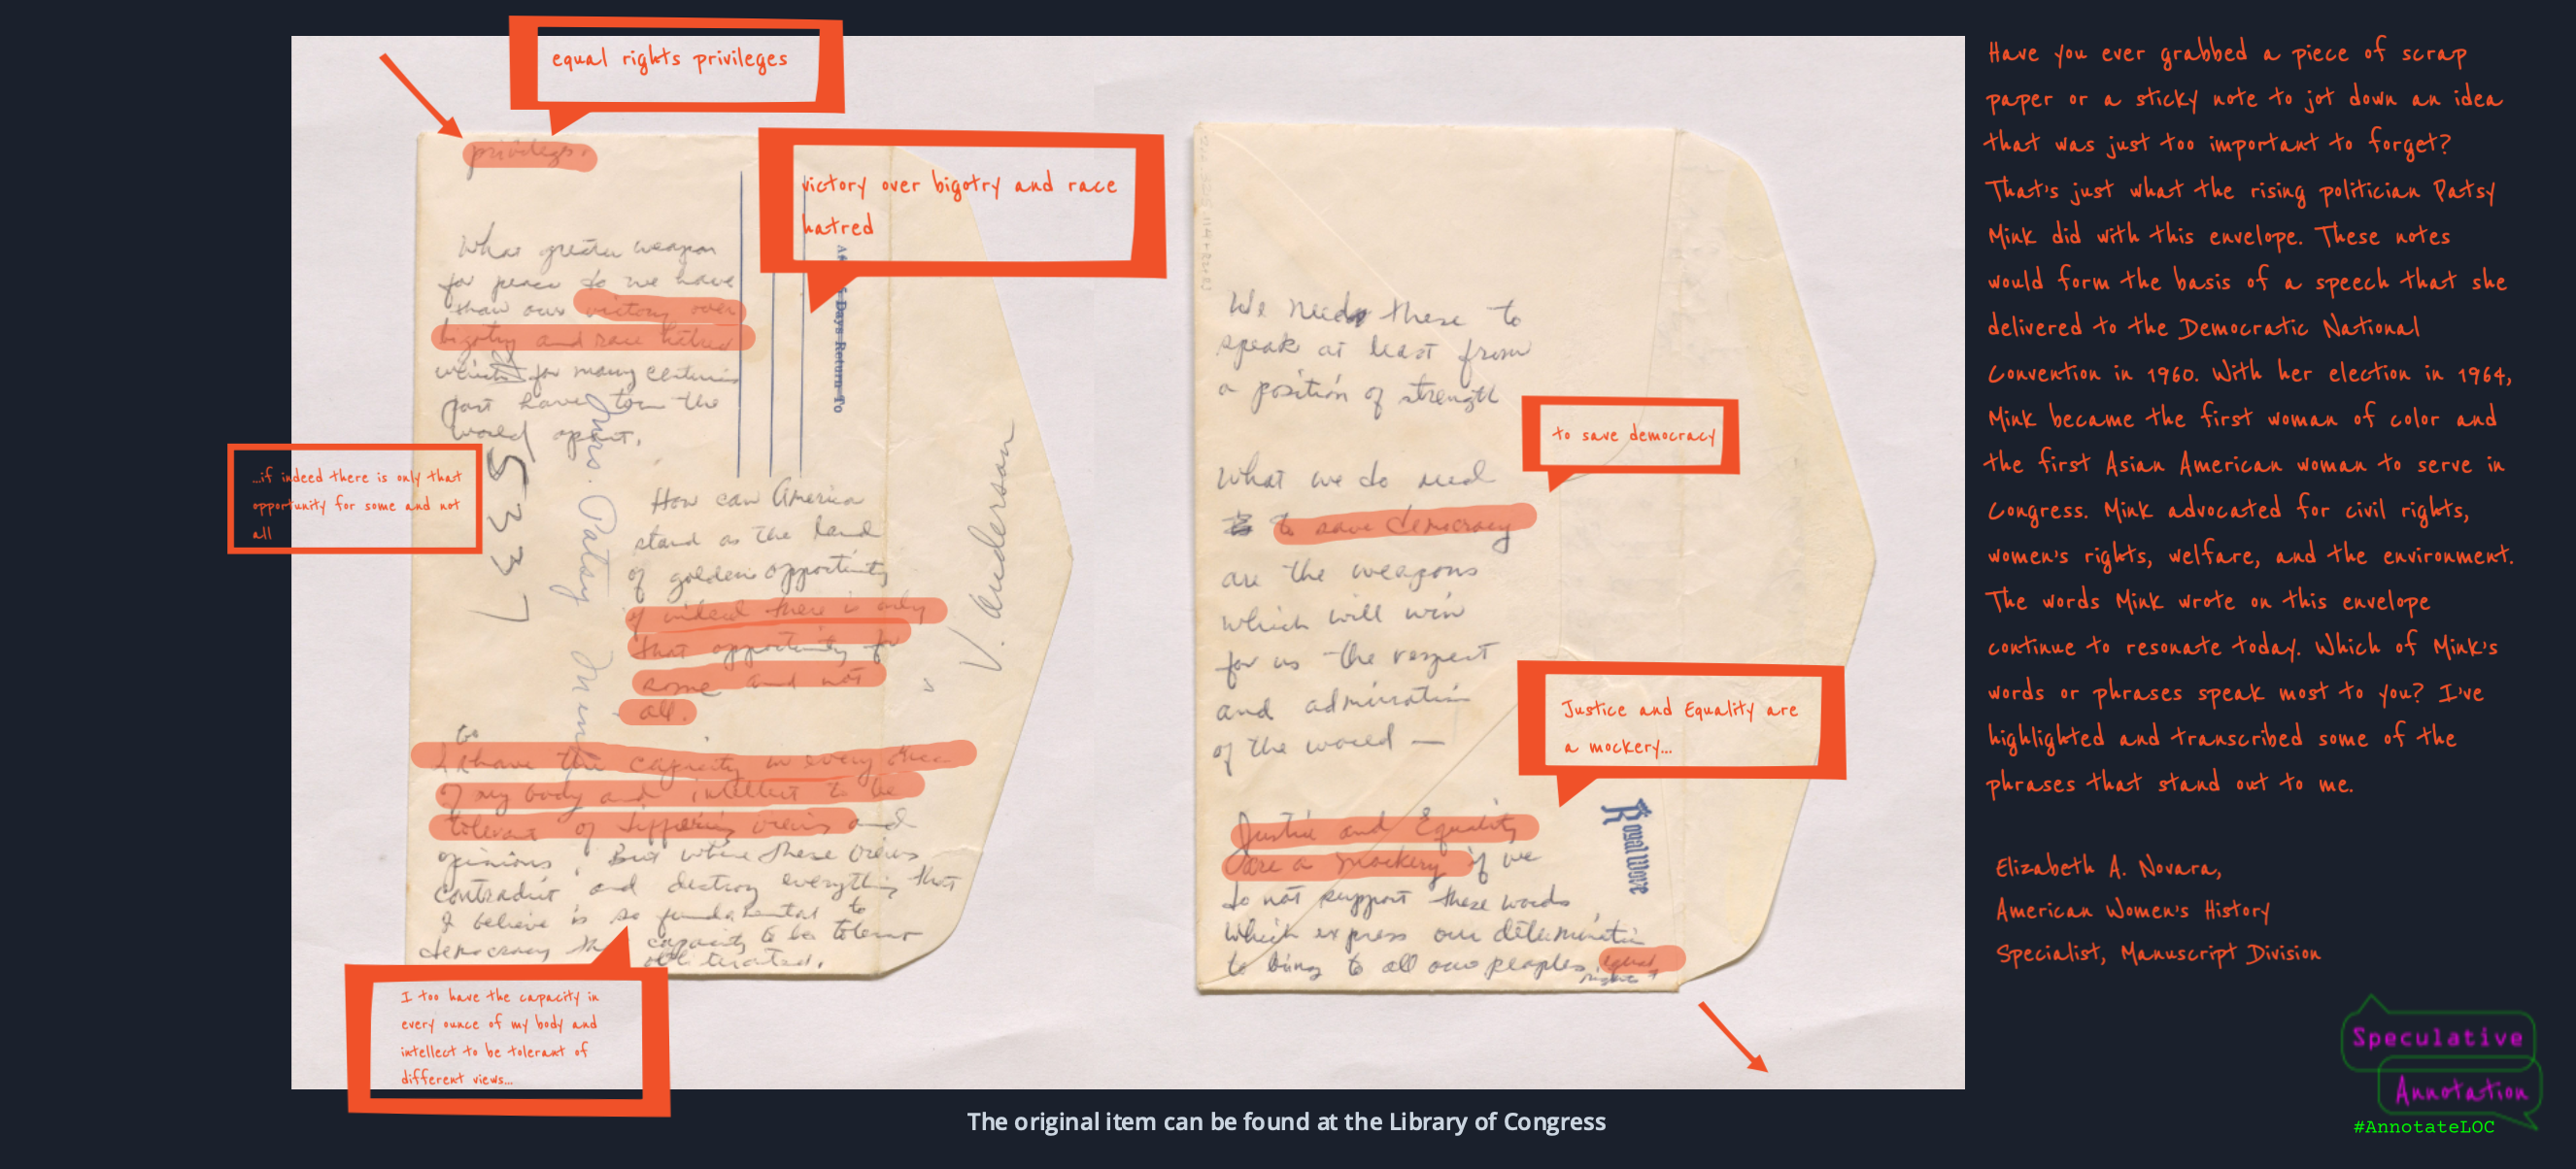 equal rights privileges
privileges.
victory over bigotry and race
hatred
What greater weapon
for peace do we have
than our victory over
bigotry and race hatred
which for many centuries
past have torn the
world apart.
After 5 Days Return To
5337
Mrs. Patsy Mink
V. Anderson
...if indeed there is only that
opportunity for some and not
all
How can America
stand as the land
of golden opportunity
if indeed there is only
that opportunity for
some and not
all.
I too have the capacity in every ounce
of my body and intellect to be
tolerant of differing views and
opinions. But where these views
contradict and destroy everything that
I believe is so fundamental to
democracy the capacity to be tolerant
obliterated.
I too have the capacity in
every ounce of my body and
intellect to be tolerant of
different views...
We need these to
speak at least from
a position of strength
to save democracy
What we do need
to save democracy
are the weapons
which will win
for us the respect
and admiration
of the world —
Justice and Equality are
a mockery...
Royal Wove
Justice and Equality
are a mockery if we
do not support these words
which express our determination
to bring to all our peoples equal
rights
Have you ever grabbed a piece of scrap
paper or a sticky note to jot down an idea
that was just too important to forget?
That's just what the rising politician Patsy
Mink did with this envelope. These notes
would form the basis of a speech that she
delivered to the Democratic National
Convention in 1960. With her election in 1964,
Mink became the first woman of color and
the first Asian American woman to serve in
Congress. Mink advocated for civil rights,
women's rights, welfare, and the environment.
The words Mink wrote on this envelope
continue to resonate today. Which of Mink's
words or phrases speak most to you? I've
highlighted and transcribed some of the
phrases that stand out to me.
Elizabeth A. Novara,
American Women's History
Specialist, Manuscript Division
Speculative
Annotation
#AnnotateLOC
The original item can be found at the Library of Congress